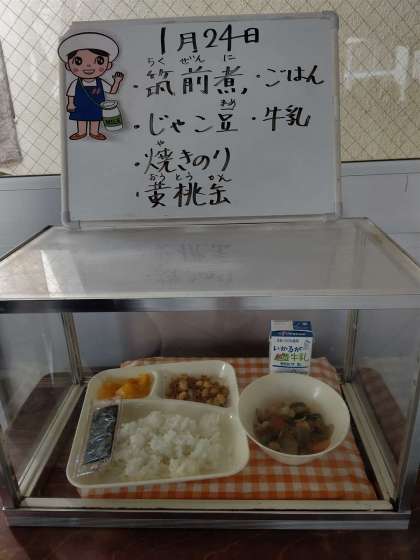 1月24日
ちくぜんに
・筑前煮,・ごはん
まめ
・じゃこ豆・牛乳
や
・焼きのり
おうとうかん
・黄桃缶
MILK
いかるが
牛乳